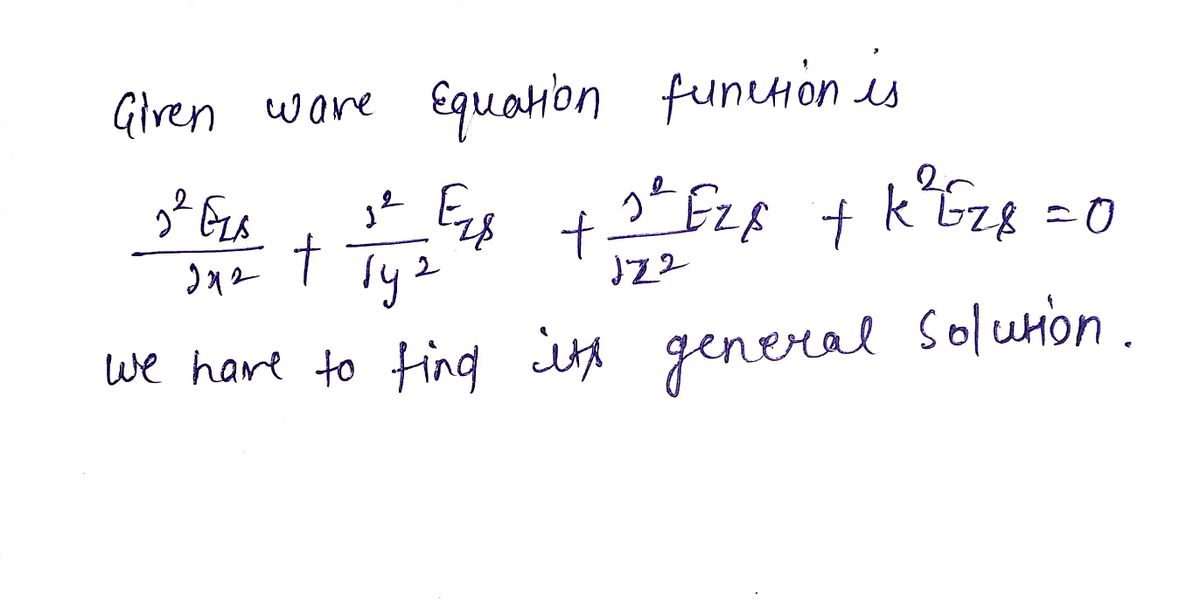 Given wave Equation function is
∂²E_zs/∂x² + ∂²E_zs/∂y² + ∂²E_zs/∂z² + k²E_zs = 0
we have to find its general solution.